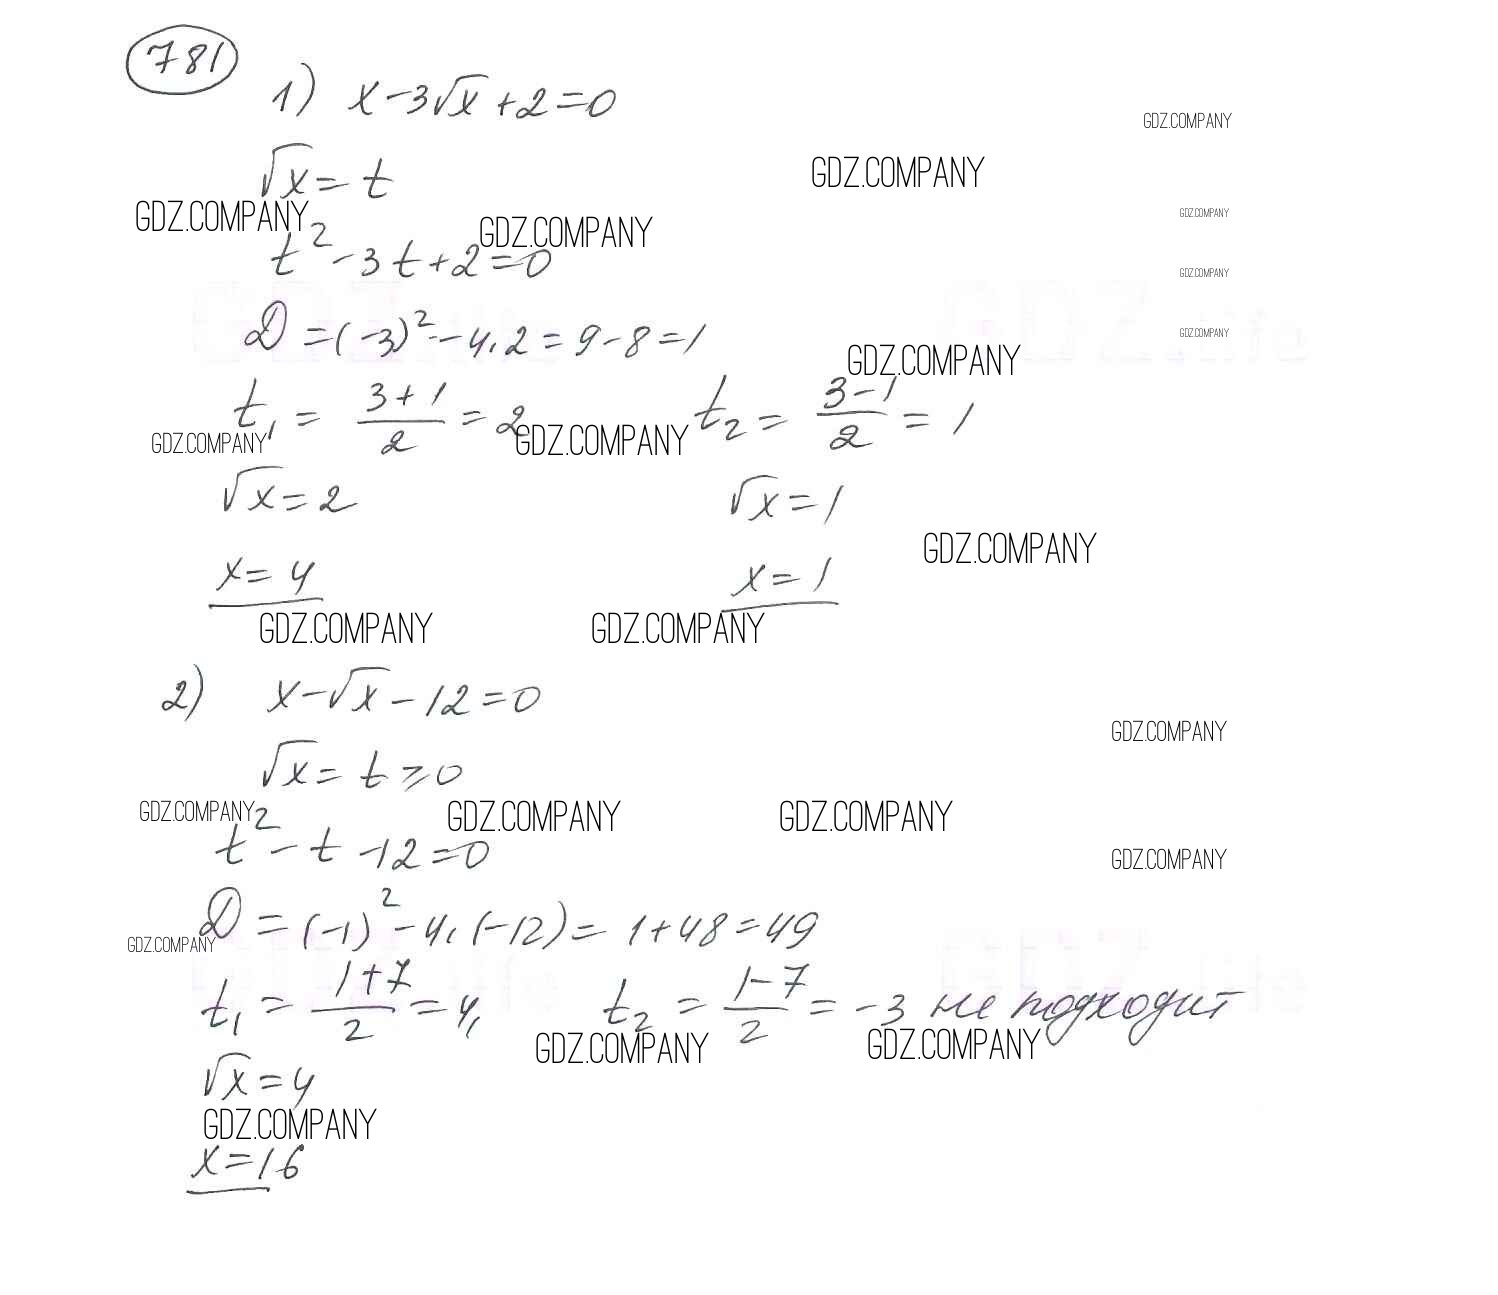 781
1) x-3√x+2=0
GDZ.COMPANY
√x=t
GDZ.COMPANY
GDZ.COMPANY GDZ.COMPANY GDZ.COMPANY
t²-3t+2=0
GDZ.COMPANY
GDZ.life GDZ.life
D=(-3)²-4·2=9-8=1
GDZ.COMPANY
GDZ.COMPANY
t₁=(3+1)/2=2 t₂=(3-1)/2=1
GDZ.COMPANY GDZ.COMPANY
√x=2 √x=1
GDZ.COMPANY
x=4 x=1
GDZ.COMPANY GDZ.COMPANY
2) x-√x-12=0
GDZ.COMPANY
√x=t≥0
GDZ.COMPANY GDZ.COMPANY GDZ.COMPANY
t²-t-12=0
GDZ.COMPANY
D=(-1)²-4·(-12)=1+48=49
GDZ.COMPANY
GDZ.life GDZ.life
t₁=(1+7)/2=4, t₂=(1-7)/2=-3 не подходит
GDZ.COMPANY GDZ.COMPANY
√x=4
GDZ.COMPANY
x=16